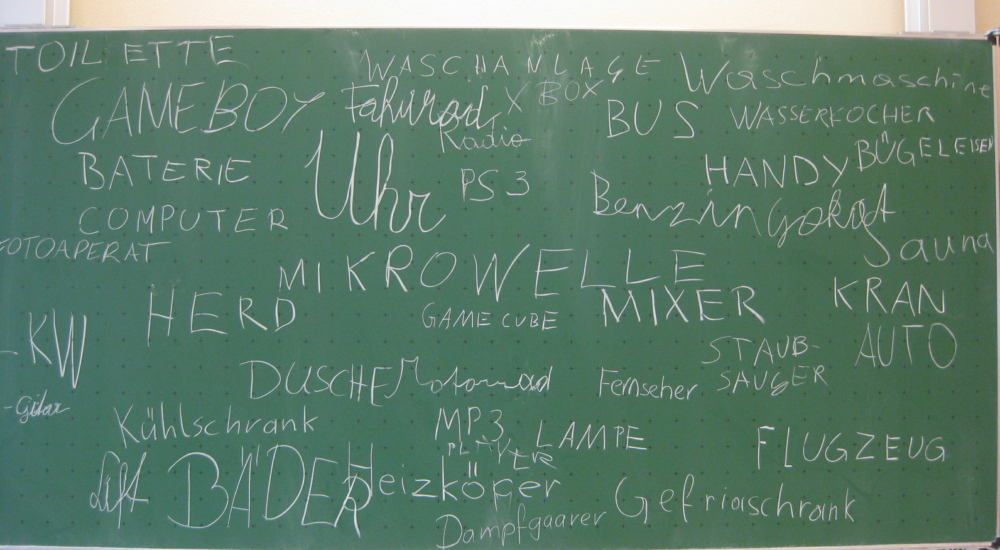 TOILETTE
WASCHANLAGE
Waschmaschine
GAMEBOY
Fahrrad
X BOX
BUS
WASSERKOCHER
Radio
BÜGELEISEN
BATERIE
Uhr
PS 3
HANDY
COMPUTER
Sauna
FOTOAPERAT
MIKROWELLE
HERD
GAME CUBE
MIXER
KRAN
-KW
STAUB-
SAUGER
AUTO
DUSCHE
Motorrad
Fernseher
-Gitar
Kühlschrank
MP3
PLAYER
LAMPE
FLUGZEUG
Lift
BÄDER
Heizköper
Gefrierschrank
Dampfgaarer